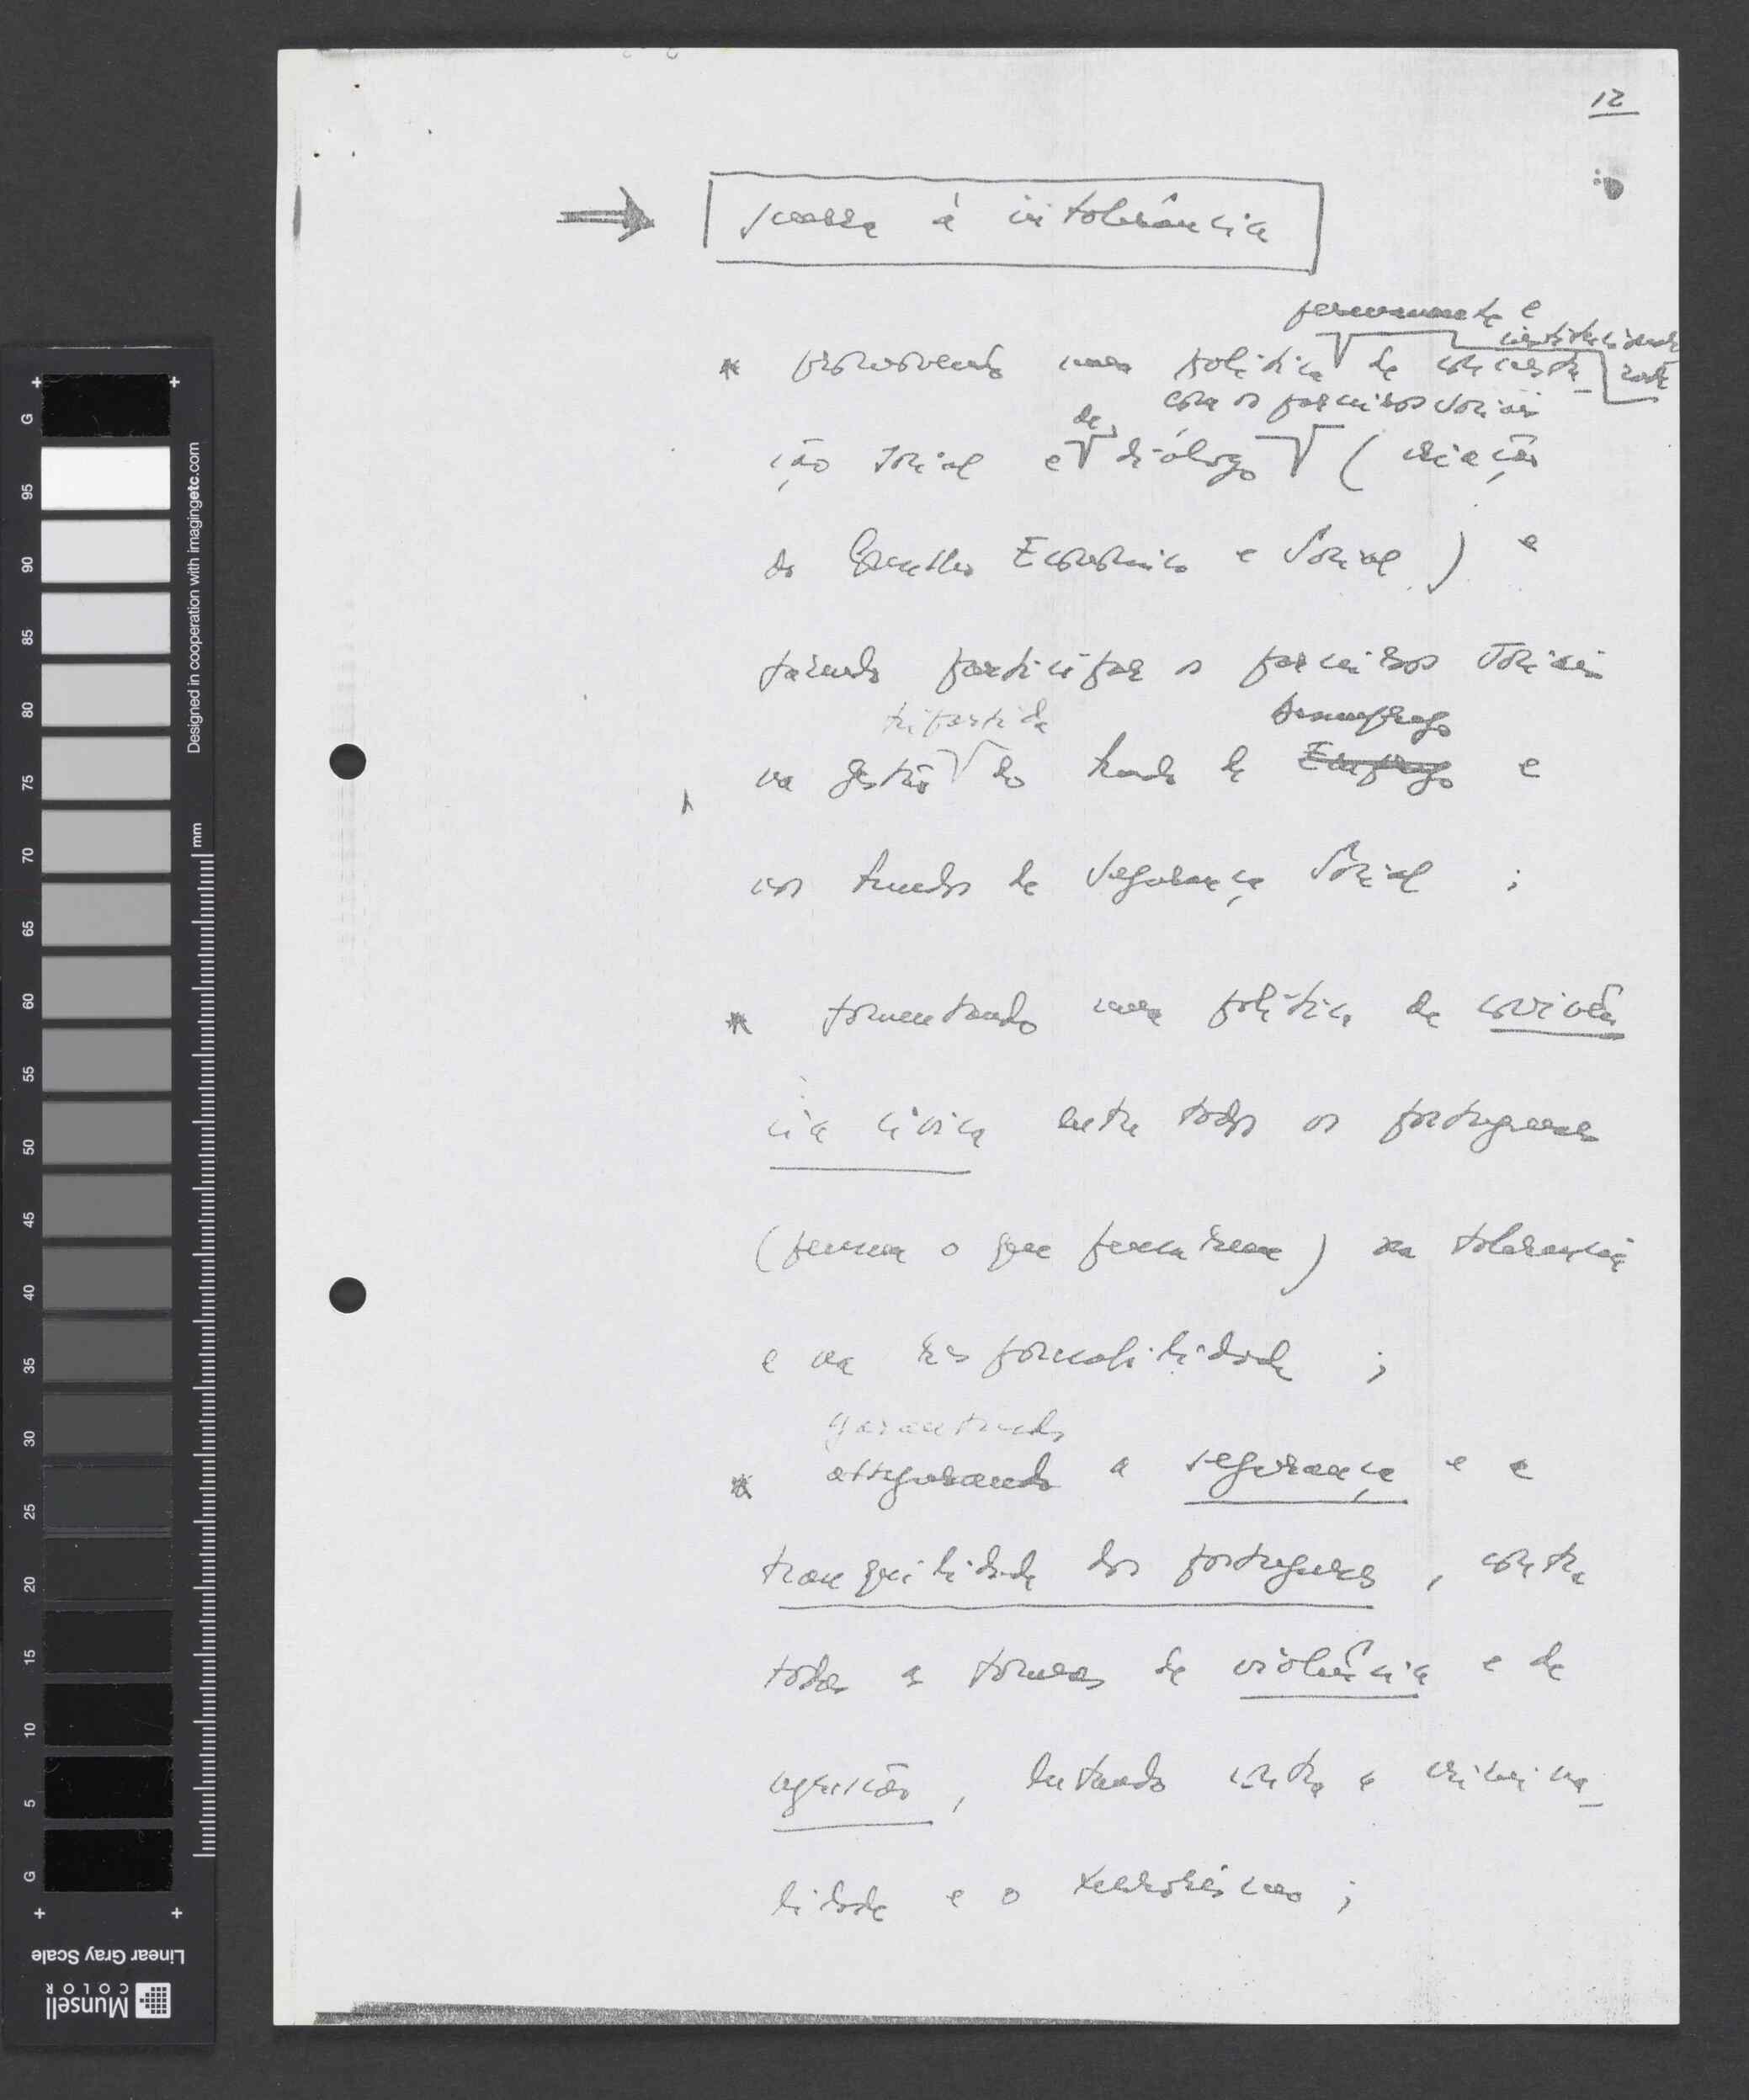 12
guerra à intolerância
permanente e
institucionali
zada
* promovendo uma política de concerta_
com os parceiros sociais
de
ção social e diálogo (criação
do Conselho Económico e Social) e
fazendo participar os parceiros sociais
tripartida desemprego
na gestão do fundo de Emprego e
nos fundos de Segurança Social ;
* fomentando uma política de convivên
cia cívica entre todos os portugueses
(pensem o que pensarem) na tolerância
e na responsabilidade ;
garantindo
* assegurando a segurança e a
tranquilidade dos portugueses, contra
todas as formas de violência e de
agressão, lutando contra a crimina_
lidade e o terrorismo ;
G
95
90
85
80
75
70
65
60
55
50
45
40
35
30
25
20
15
10
5
G
mm
Designed in cooperation with imagingetc.com
Linear Gray Scale
Munsell
COLOR